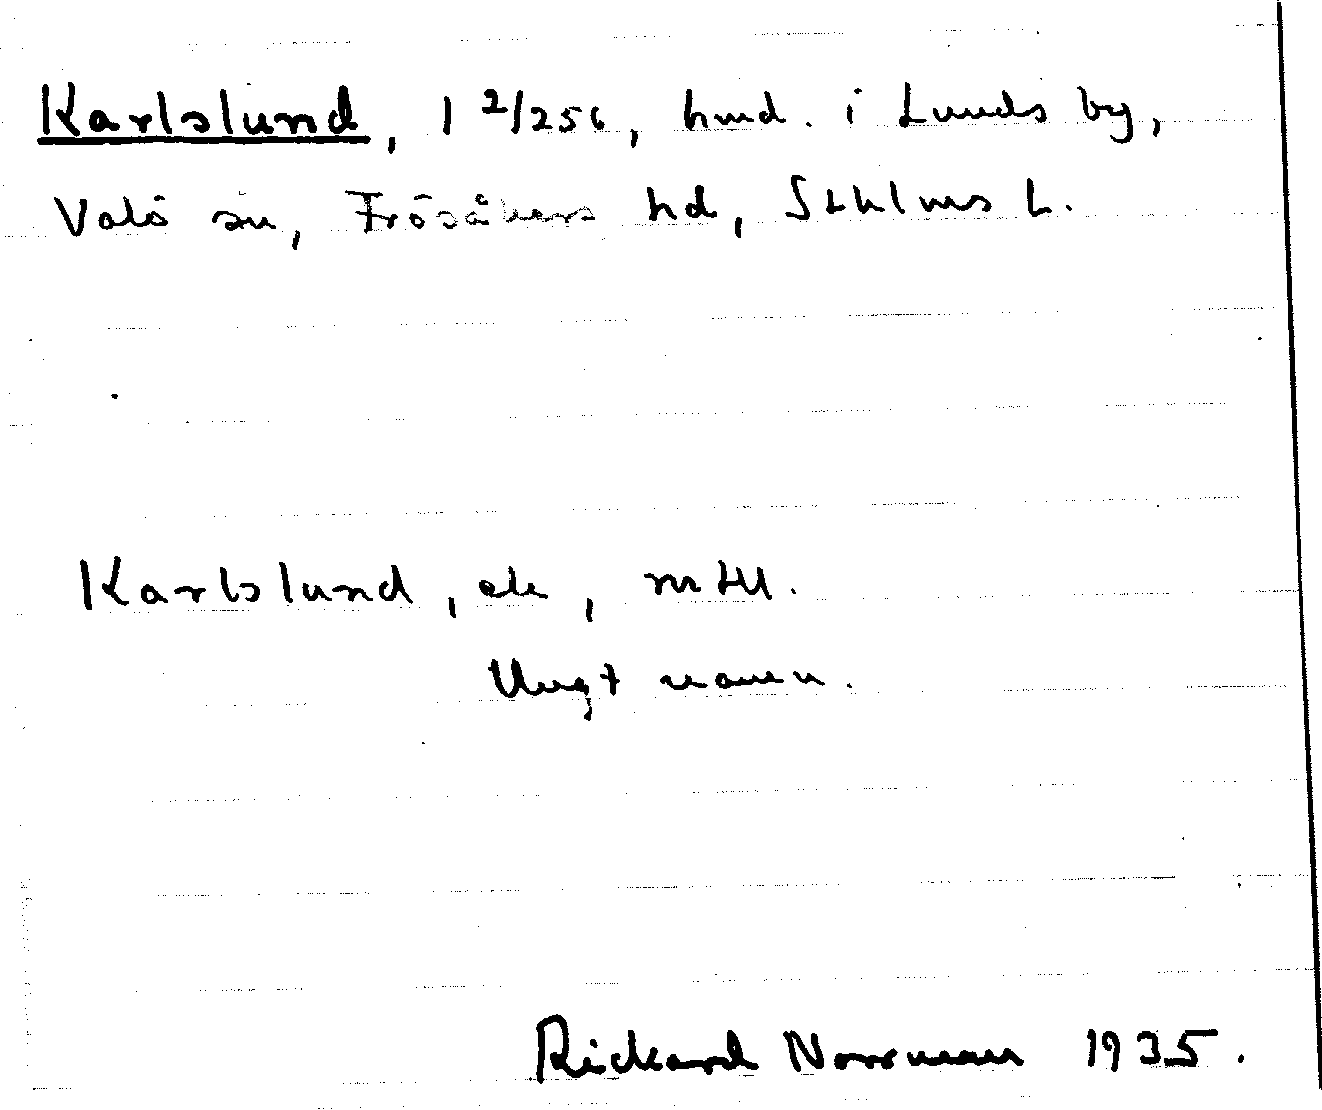 Karlslund, 1 2/256, hmd. i Lunds by,
Valö sn, Frösåkers hd, Sthlms L.
Karlslund, ele, mtl.
Ungt namn.
Rickard Norrman 1935.